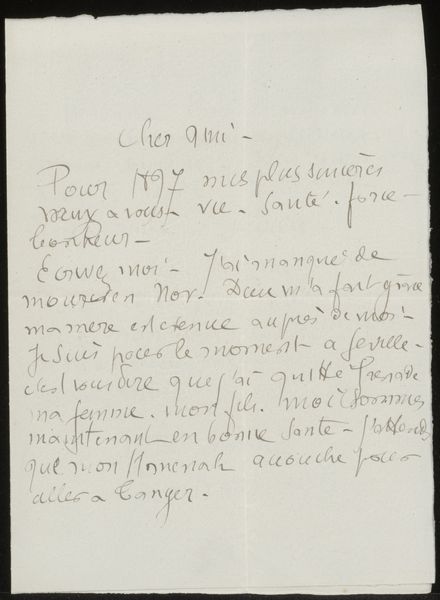 Cher ami -
Pour 1897 mes plus sincères
vœux a vous - vie - santé - force -
bonheur -
Ecrivez moi - J'ai manqué de
mourir en Nov. Dieu m'a fait grâce
ma mere est venue auprès de moi -
Je suis pour le moment a Seville -
c'est vous dire que j'ai quitté Grenade
ma femme. mon fils. moi sommes
maintenant en bonne santé - J'attends
que mon accouche pour
aller a Tanger -